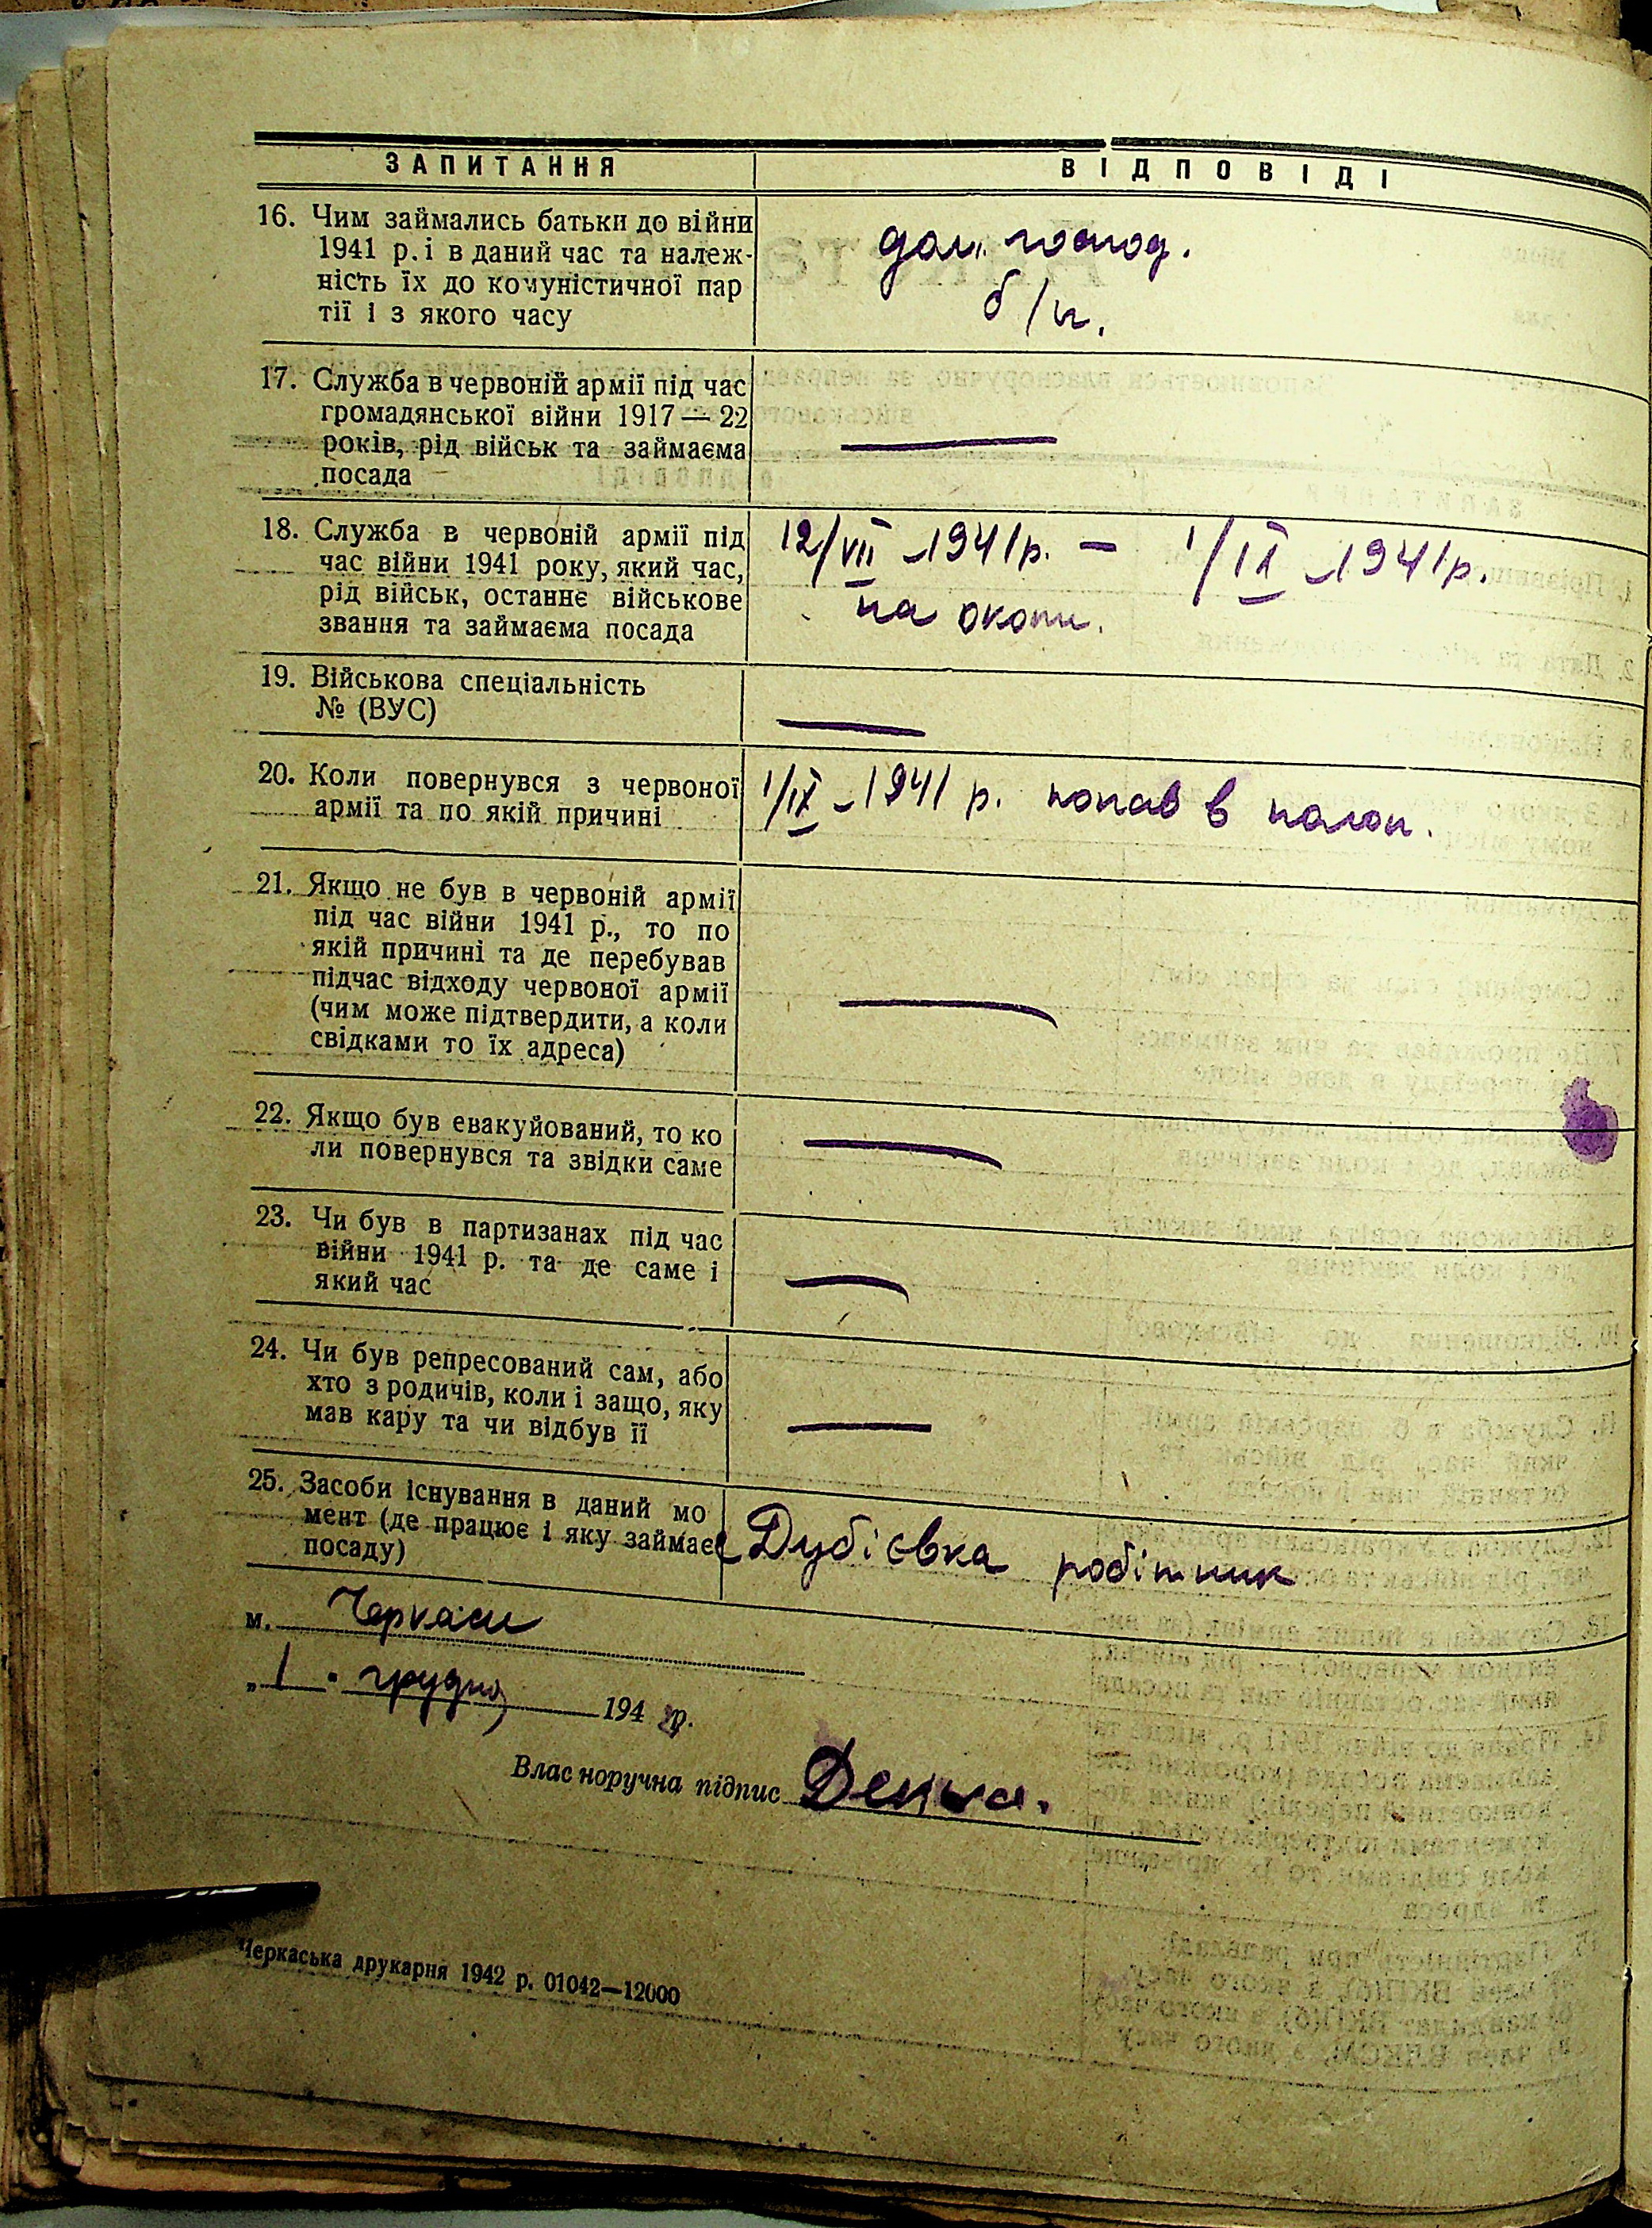 ЗАПИТАННЯ ВІДПОВІДІ
16. Чим займались батьки до війни
1941 р. і в даний час та належ-
ність їх до комуністичної пар
тії і з якого часу
дом. господ.
б/п.
17. Служба в червоній армії під час
громадянської війни 1917—22
років, рід військ та займаєма
посада
—
18. Служба в червоній армії під
час війни 1941 року, який час,
рід військ, останнє військове
звання та займаєма посада
12/VII -1941р. — 1/IX -1941р.
на окопи.
19. Військова спеціальність
№ (ВУС)
—
20. Коли повернувся з червоної
армії та по якій причині
1/IX -1941 р. попав в полон.
21. Якщо не був в червоній армії
під час війни 1941 р., то по
якій причині та де перебував
підчас відходу червоної армії
(чим може підтвердити, а коли
свідками то їх адреса)
—
22. Якщо був евакуйований, то ко
ли повернувся та звідки саме
—
23. Чи був в партизанах під час
війни 1941 р. та де саме і
який час
—
24. Чи був репресований сам, або
хто з родичів, коли і защо, яку
мав кару та чи відбув її
—
25. Засоби існування в даний мо
мент (де працює і яку займає
посаду)
Дубієвка робітник
м. Черкаси
„1" грудня 1942р.
Власноручна підпис
Черкаська друкарня 1942 р. 01042—12000